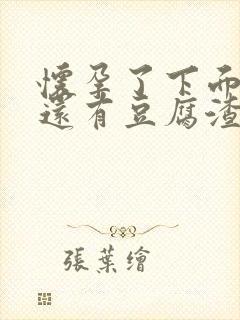 懷孕了下面
還有豆腐渣
張葉繪